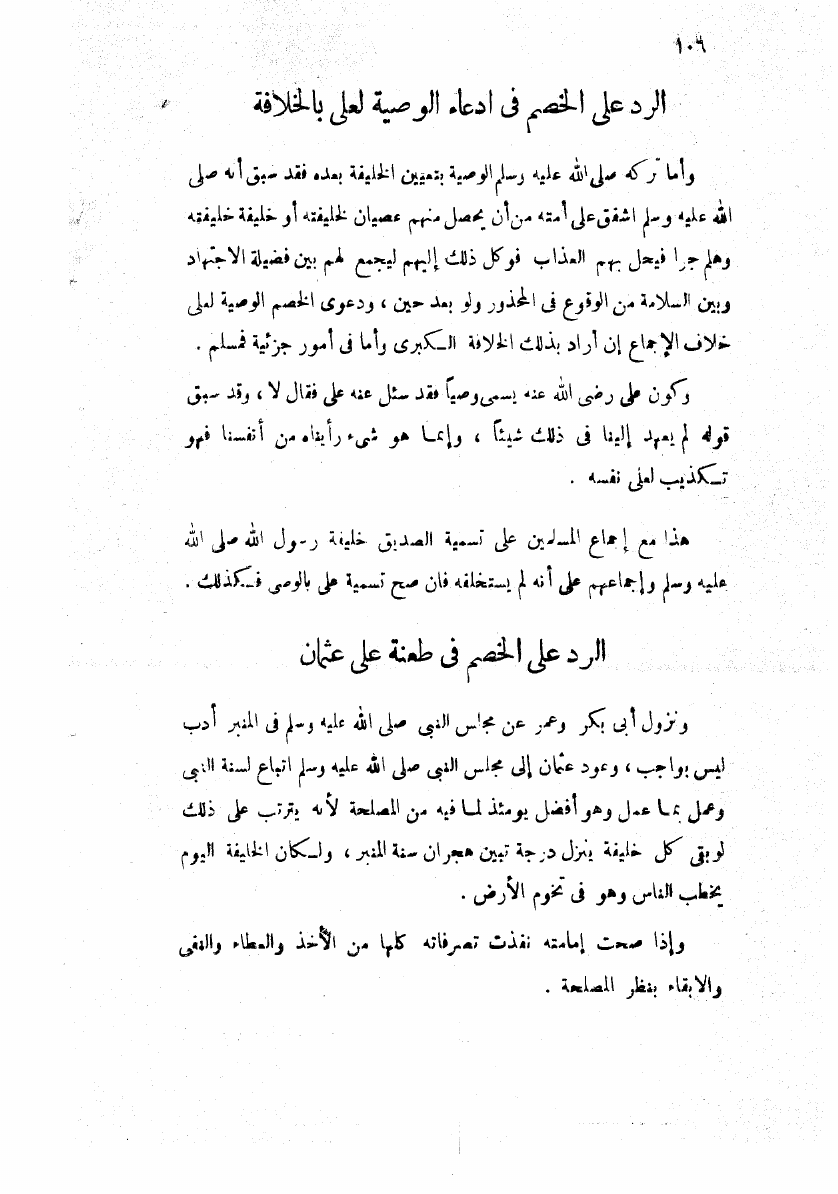 ١٠٩
الرد على الخصم فى ادعاء الوصية لعلى بالخلافة
وأما تركه صلى الله عليه وسلم الوصية بتعيين الخليفة بعده فقد سبق أنه صلى
الله عليه وسلم اشفق على أمته من أن يحصل منهم عصيان لخليفته أو خليفة خليفته
وهلم جرا فيحل بهم العذاب فوكل ذلك إليهم ليجمع لهم بين فضيلة الاجتهاد
وبين السلامة من الوقوع فى المحذور ولو بعد حين ، ودعوى الخصم الوصية لعلى
خلاف الإجماع إن أراد بذلك الخلافة الكبرى وأما فى أمور جزئية فمسلم .
وكون على رضى الله عنه يسمى وصياً فقد سئل عنه على فقال لا ، وقد سبق
قوله لم يعهد إلينا فى ذلك شيئاً ، وإنما هو شىء رأيناه من أنفسنا فهو
تكذيب لعلى نفسه .
هذا مع إجماع المسلمين على تسمية الصديق خليفة رسول الله صلى الله
عليه وسلم وإجماعهم على أنه لم يستخلفه فان صح تسمية على بالوصى فكذلك .
الرد على الخصم فى طعنة على عثمان
ونزول أبى بكر وعمر عن مجلس النبى صلى الله عليه وسلم فى المنبر أدب
ليس بواجب ، وعود عثمان إلى مجلس النبى صلى الله عليه وسلم اتباع لسنة النبى
وعمل بما عمل وهو أفضل يومئذ لما فيه من المصلحة لأنه يترتب على ذلك
لو بقى كل خليفة ينزل درجة تبين هجران سنة المنبر ، ولكان الخليفة اليوم
يخطب الناس وهو فى تخوم الأرض .
وإذا صحت إمامته نفذت تصرفاته كلها من الأخذ والعطاء والنفى
والابقاء بنظر المصلحة .